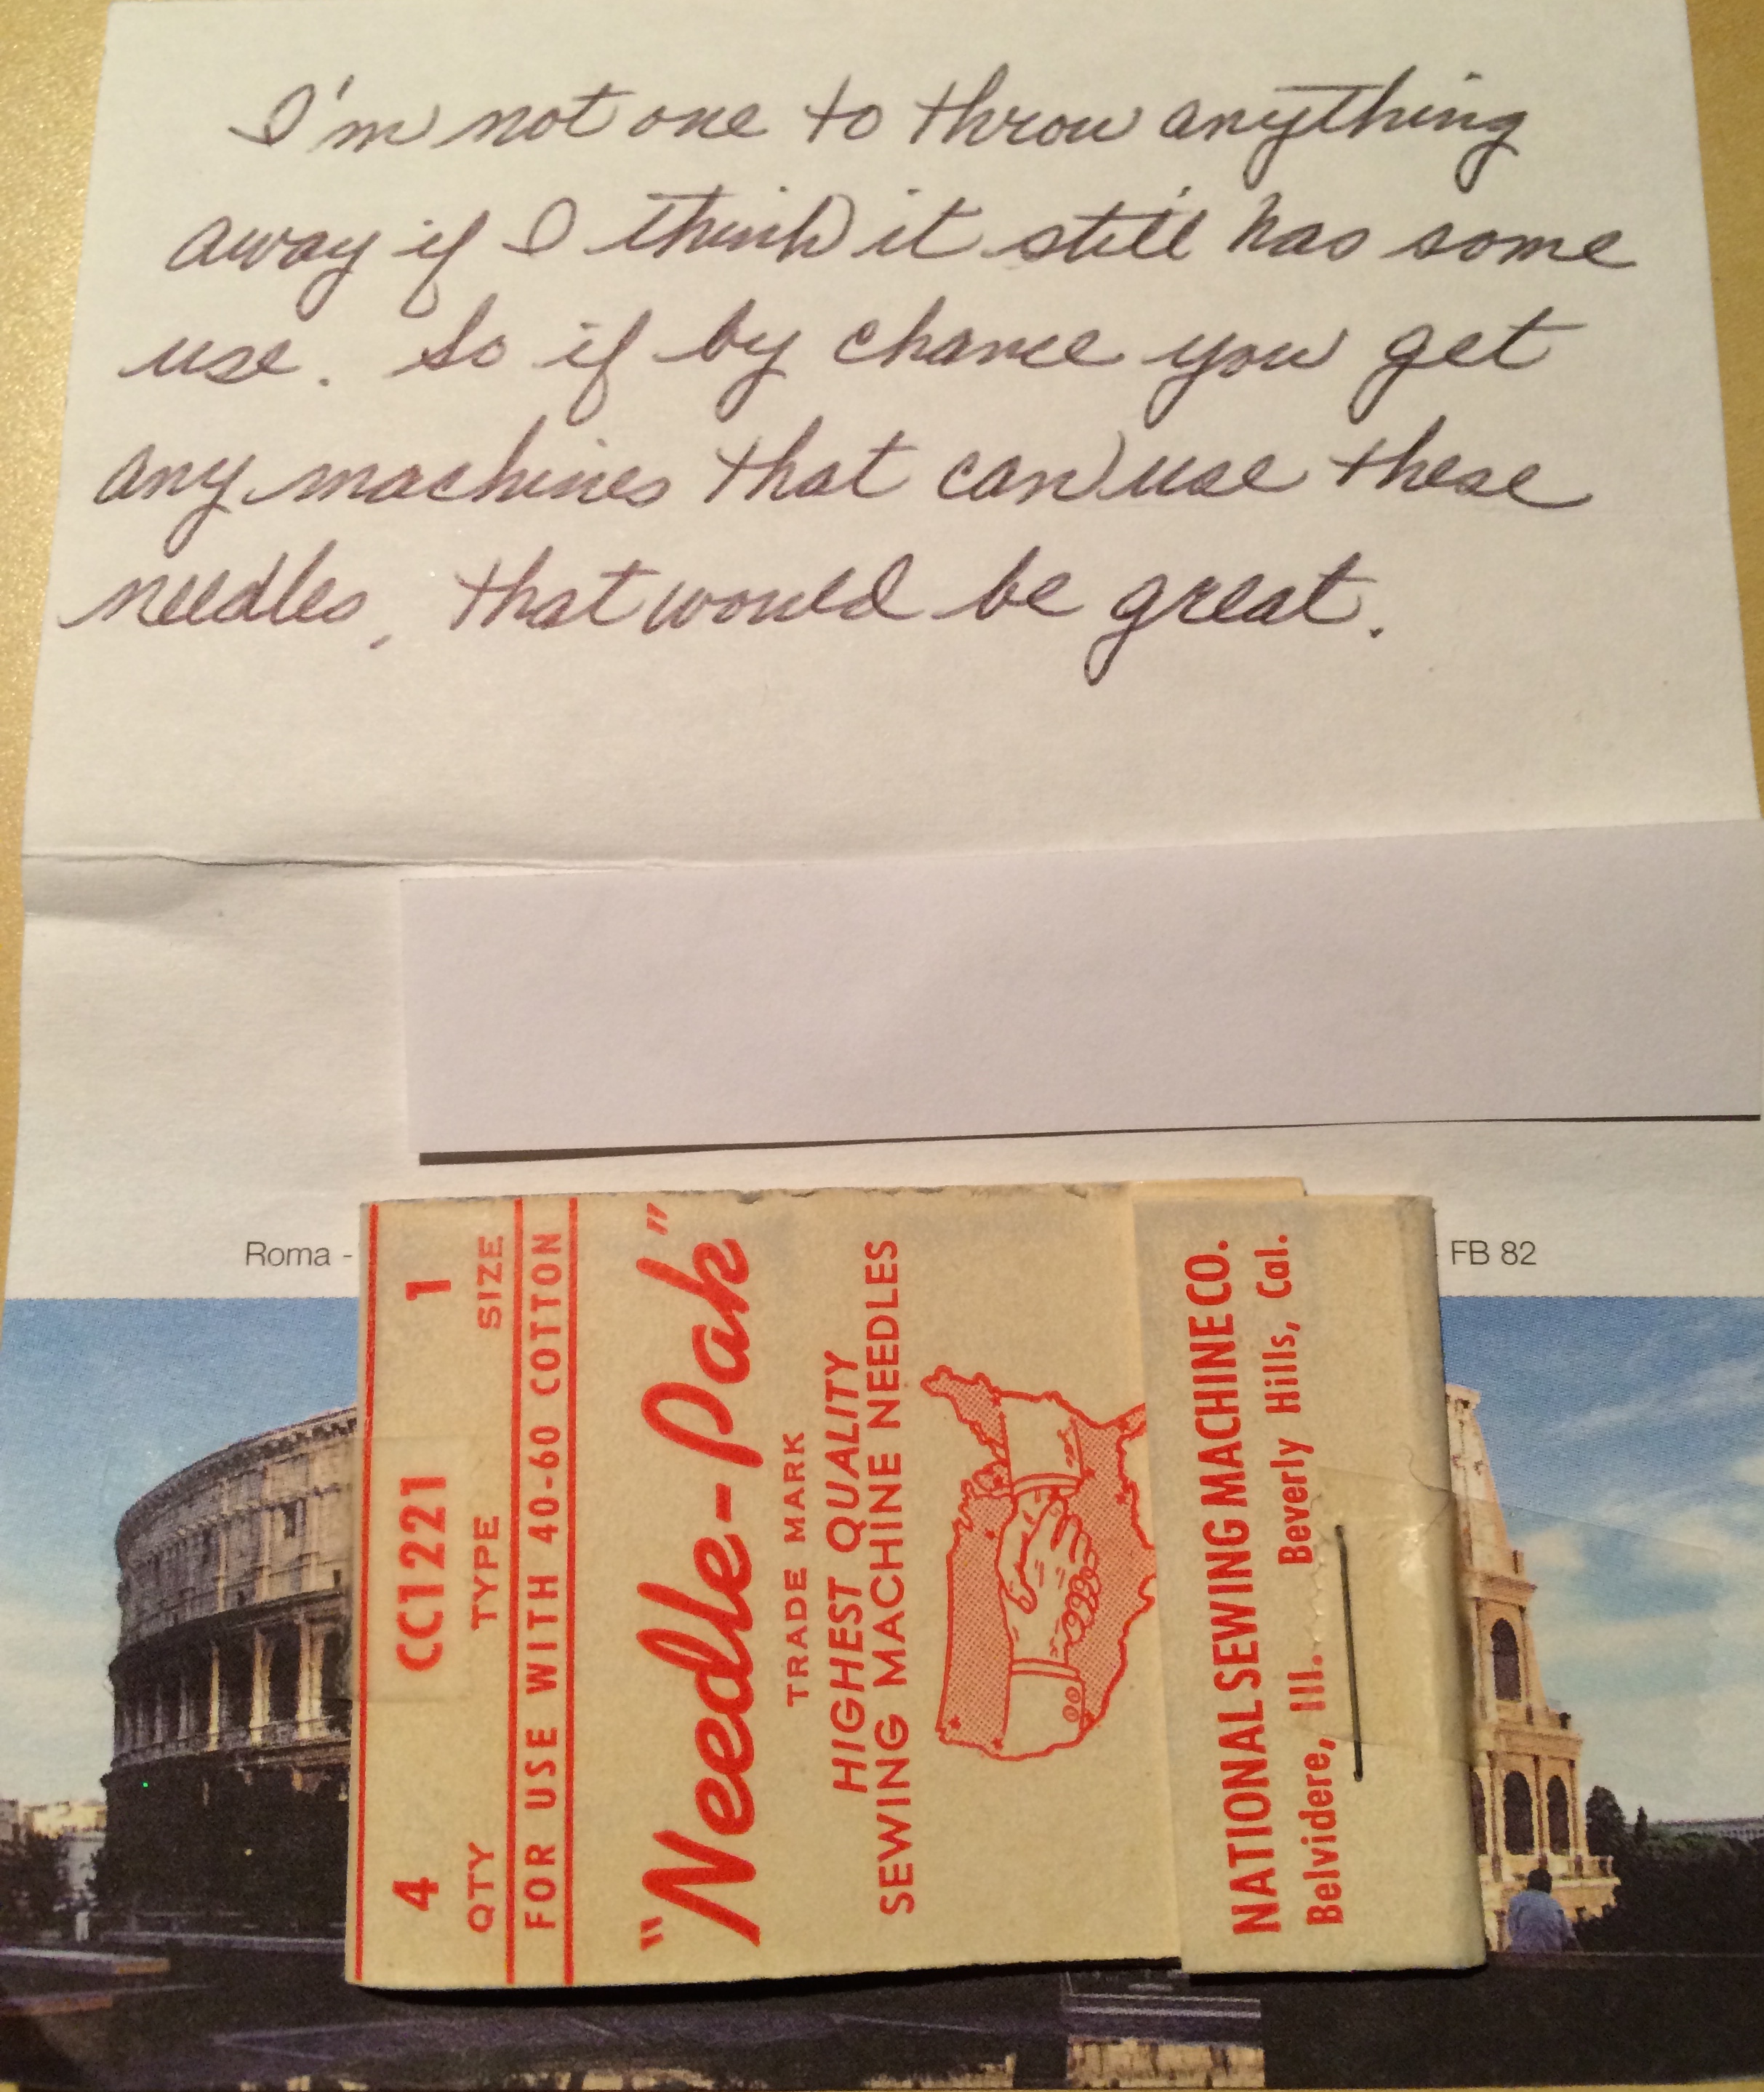 I'm not one to throw anything
away if I think it still has some
use. So if by chance you get
any machines that can use these
needles, that would be great.
Roma -
- FB 82
4 CC1221 1
QTY TYPE SIZE
FOR USE WITH 40-60 COTTON
"Needle-Pak"
TRADE MARK
HIGHEST QUALITY
SEWING MACHINE NEEDLES
NATIONAL SEWING MACHINE CO.
Belvidere, Ill. Beverly Hills, Cal.